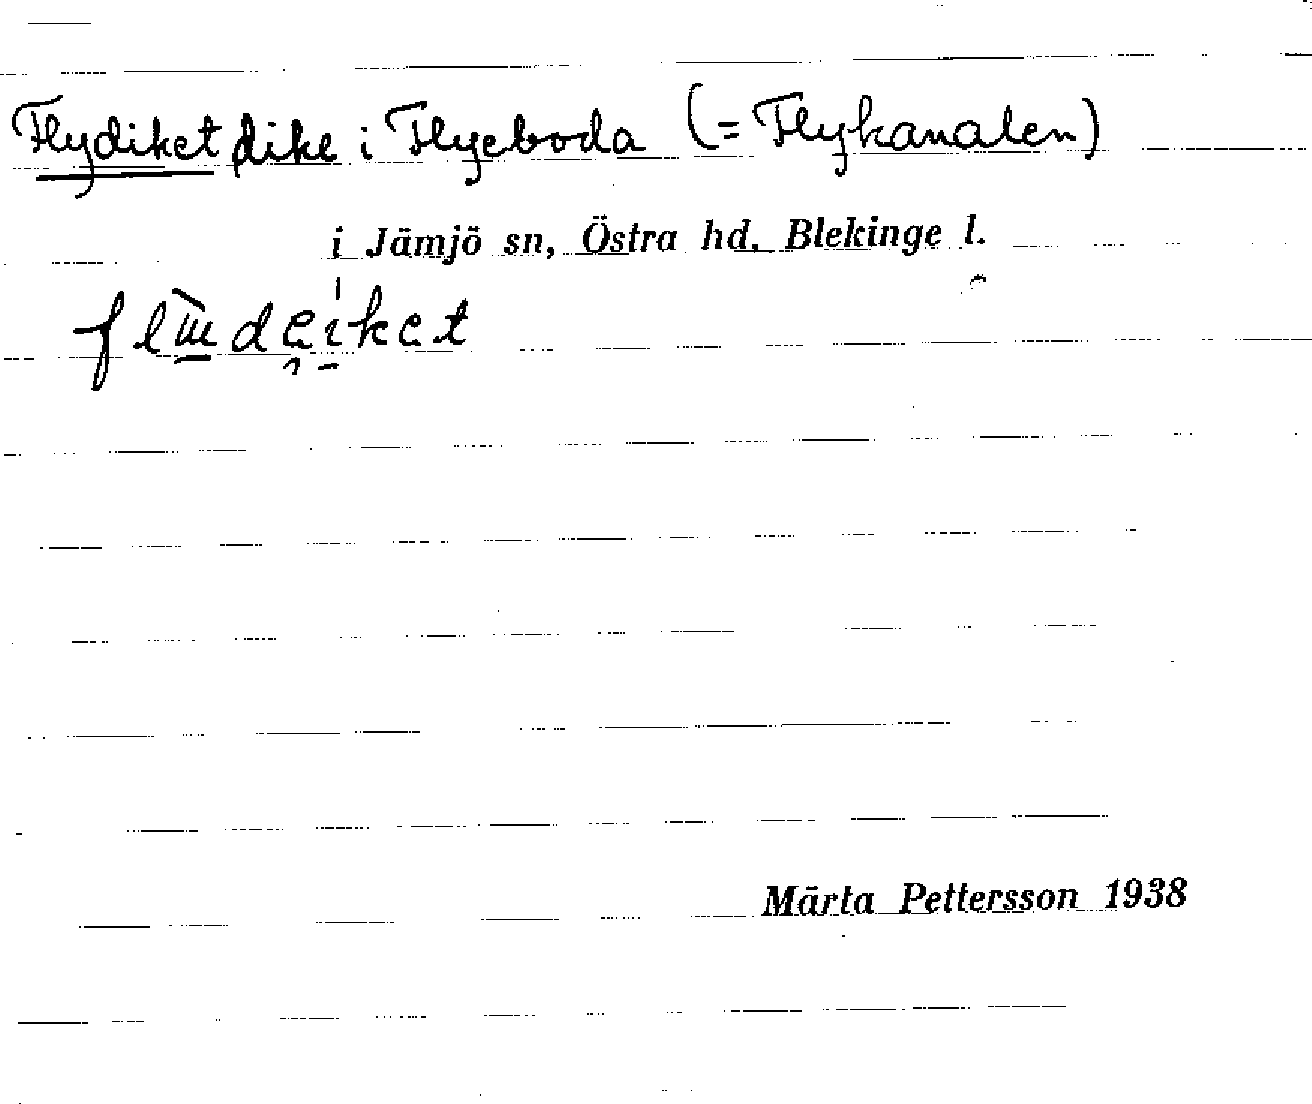 Flydiket dike i Flyeboda (= Flykanalen)
i Jämjö sn, Östra hd, Blekinge l.
Märta Pettersson 1938